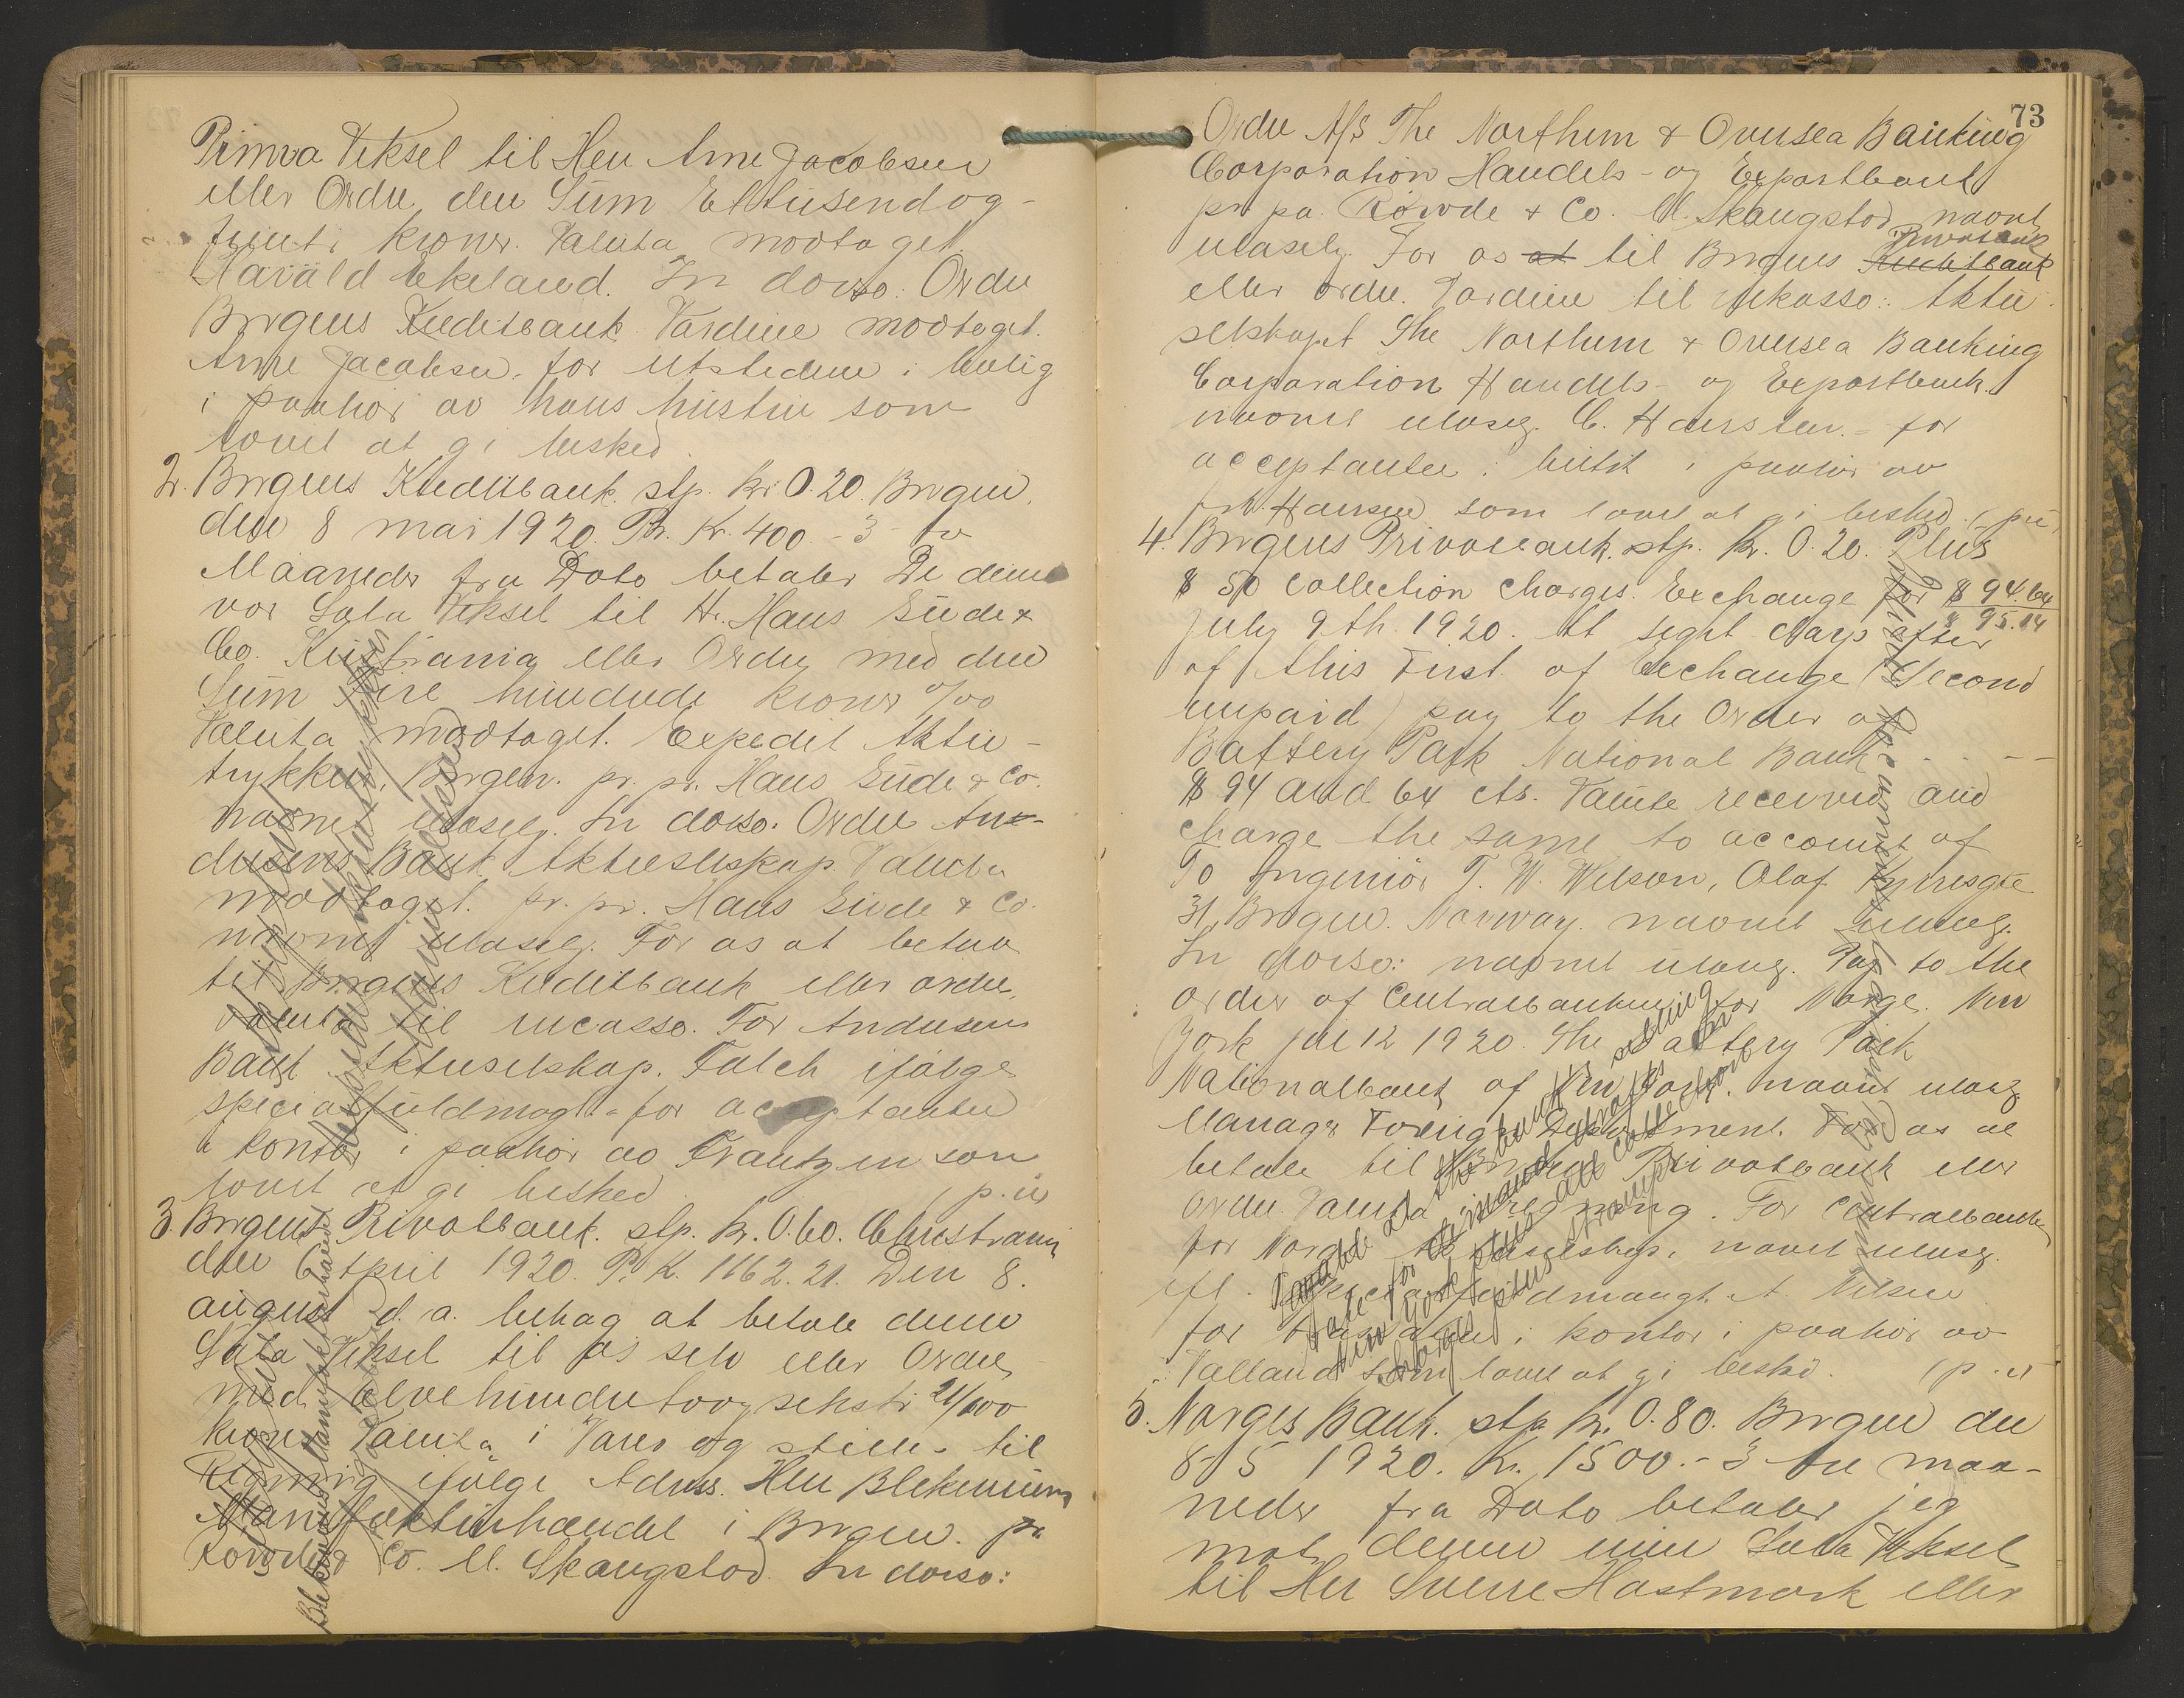 Prima Veksel til Herr Arne Jacobsen
eller Ordre den Sum Ettusend og
femti kroner. Valuta modtaget.
Harald Ekeland. In dorso: Ordre
Bergens Kreditbank Værdien modtaget.
Arne Jacobsen. for utstederen i bolig
i paahør av hans hustru som
lovet at gi besked
2. Bergens Kreditbank. stp. kr. 0.20. Bergen,
den 8 mai 1920. Pr. Kr. 400.- 3 tre
Maaneder fra Dato betaler De denne
vor Sola Veksel til Hr. Hans Gude &
Co. Kristiania eller Ordre med den
Sum Fire hundrede kroner 0/00
Valuta modtaget. Expedit Aktie-
trykkeri, Bergen. pr. pr. Hans Gude & Co.
navnet ulæselg. In dorso: Ordre An-
dresens Bank Aktieselskap. Valuta
modtaget. pr. pr. Hans Gude & Co.
navnet ulæselg. For os at betale
til Bergens Kreditbank eller ordre,
Valuta til incasso. For Andresens
Bank Aktieselskap. Falch ifølge
specialfuldmagt - for acceptanten
i kontor i paahør av Frantzen som
lovet at gi besked (p.u)
3. Bergens Privatbank. stp. kr. 0.60. Christiania
den 6 April 1920. Pr. K. 1162.21. Den 8.
august d. a. behag at betale denne
Sola Veksel til os selv eller Ordre
med elvehundretoogseksti 21/100
kroner Valuta i Varer og stilles til
Regning ifølge Advis. Herr Blekeniuns
Manufakturhandel i Bergen. pr
Rowde & Co. M. Skaugstad. In dorso:
73
Ordre A/S The Northern & Oversea Banking
Corporation Handels- og Exportbank
pr. pa. Rowde & Co. M. Skaugstad navnet
ulæselg. For os at til Bergens Kreditbank
Privatbank
eller ordre. Værdien til inkasso: Aktie
selskapet The Northern & Oversea Banking
Corporation Handels- og Exportbank.
navnet ulæselg. C. Hansten. - for
acceptanten i butik i paahør av
frk. Hansen som lovet at gi besked. (p.u)
4. Bergens Privatbank. stp. kr. 0.20. Plus
$ 50 collection charges. Exchange for $ 94.64
$ 95.14
July 9th 1920. At sight days after
of this First of Exchange (Second
unpaid) pay to the Order of
Battery Park National Bank . . - -
$ 94 and 64 cts. Value received and
charge the same to account of
To Ingeniør T. W. Wilson, Olaf Kyrresgte
31, Bergen. Norway. navnet ulæselg.
In dorso: navnet ulæselg. Pay to the
order of Centralbanken for Norge. New
York jul 12 1920. The Battery Park
Nationalbank of New York. navnet ulæselg
Manager Foreign Department. For os at
betale til Bergens Privatbank eller
ordre. Valuta i regning. For Centralbanken
for Norge Aktieselskap, navnet ulæselg.
ifl. Specialfuldmangt. A. Nilsen
for trassaten i kontor i paahør av
Valland som lovet at gi besked. (p.u)
5. Norges Bank. stp. kr. 0.80. Bergen den
8-5 1920. Kr. 1500.- 3 tre maa-
neder fra Dato betaler jeg
mot denne min Sola Veksel
til Herr Sverre Hastmark eller
Payable at the bank's selling
rate for demand drafts on
New York plus all collection
charges plus stamps